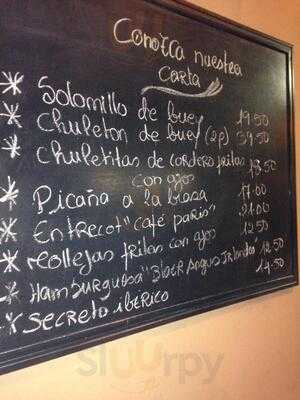 Conozca nuestra
carta
* Solomillo de buey 19.50
* Chuleton de buey (2p) 39.50
* Chuletitas de cordero fritas
con ajos 13,50
* Picaña a la brasa 17.00
* Entrecot "café paris" 21.00
* mollejas fritas con ajos 12.50
* Hamburguesa "Black Angus Irlandes" 12.50
* secreto iberico 14.50
Sluurpy